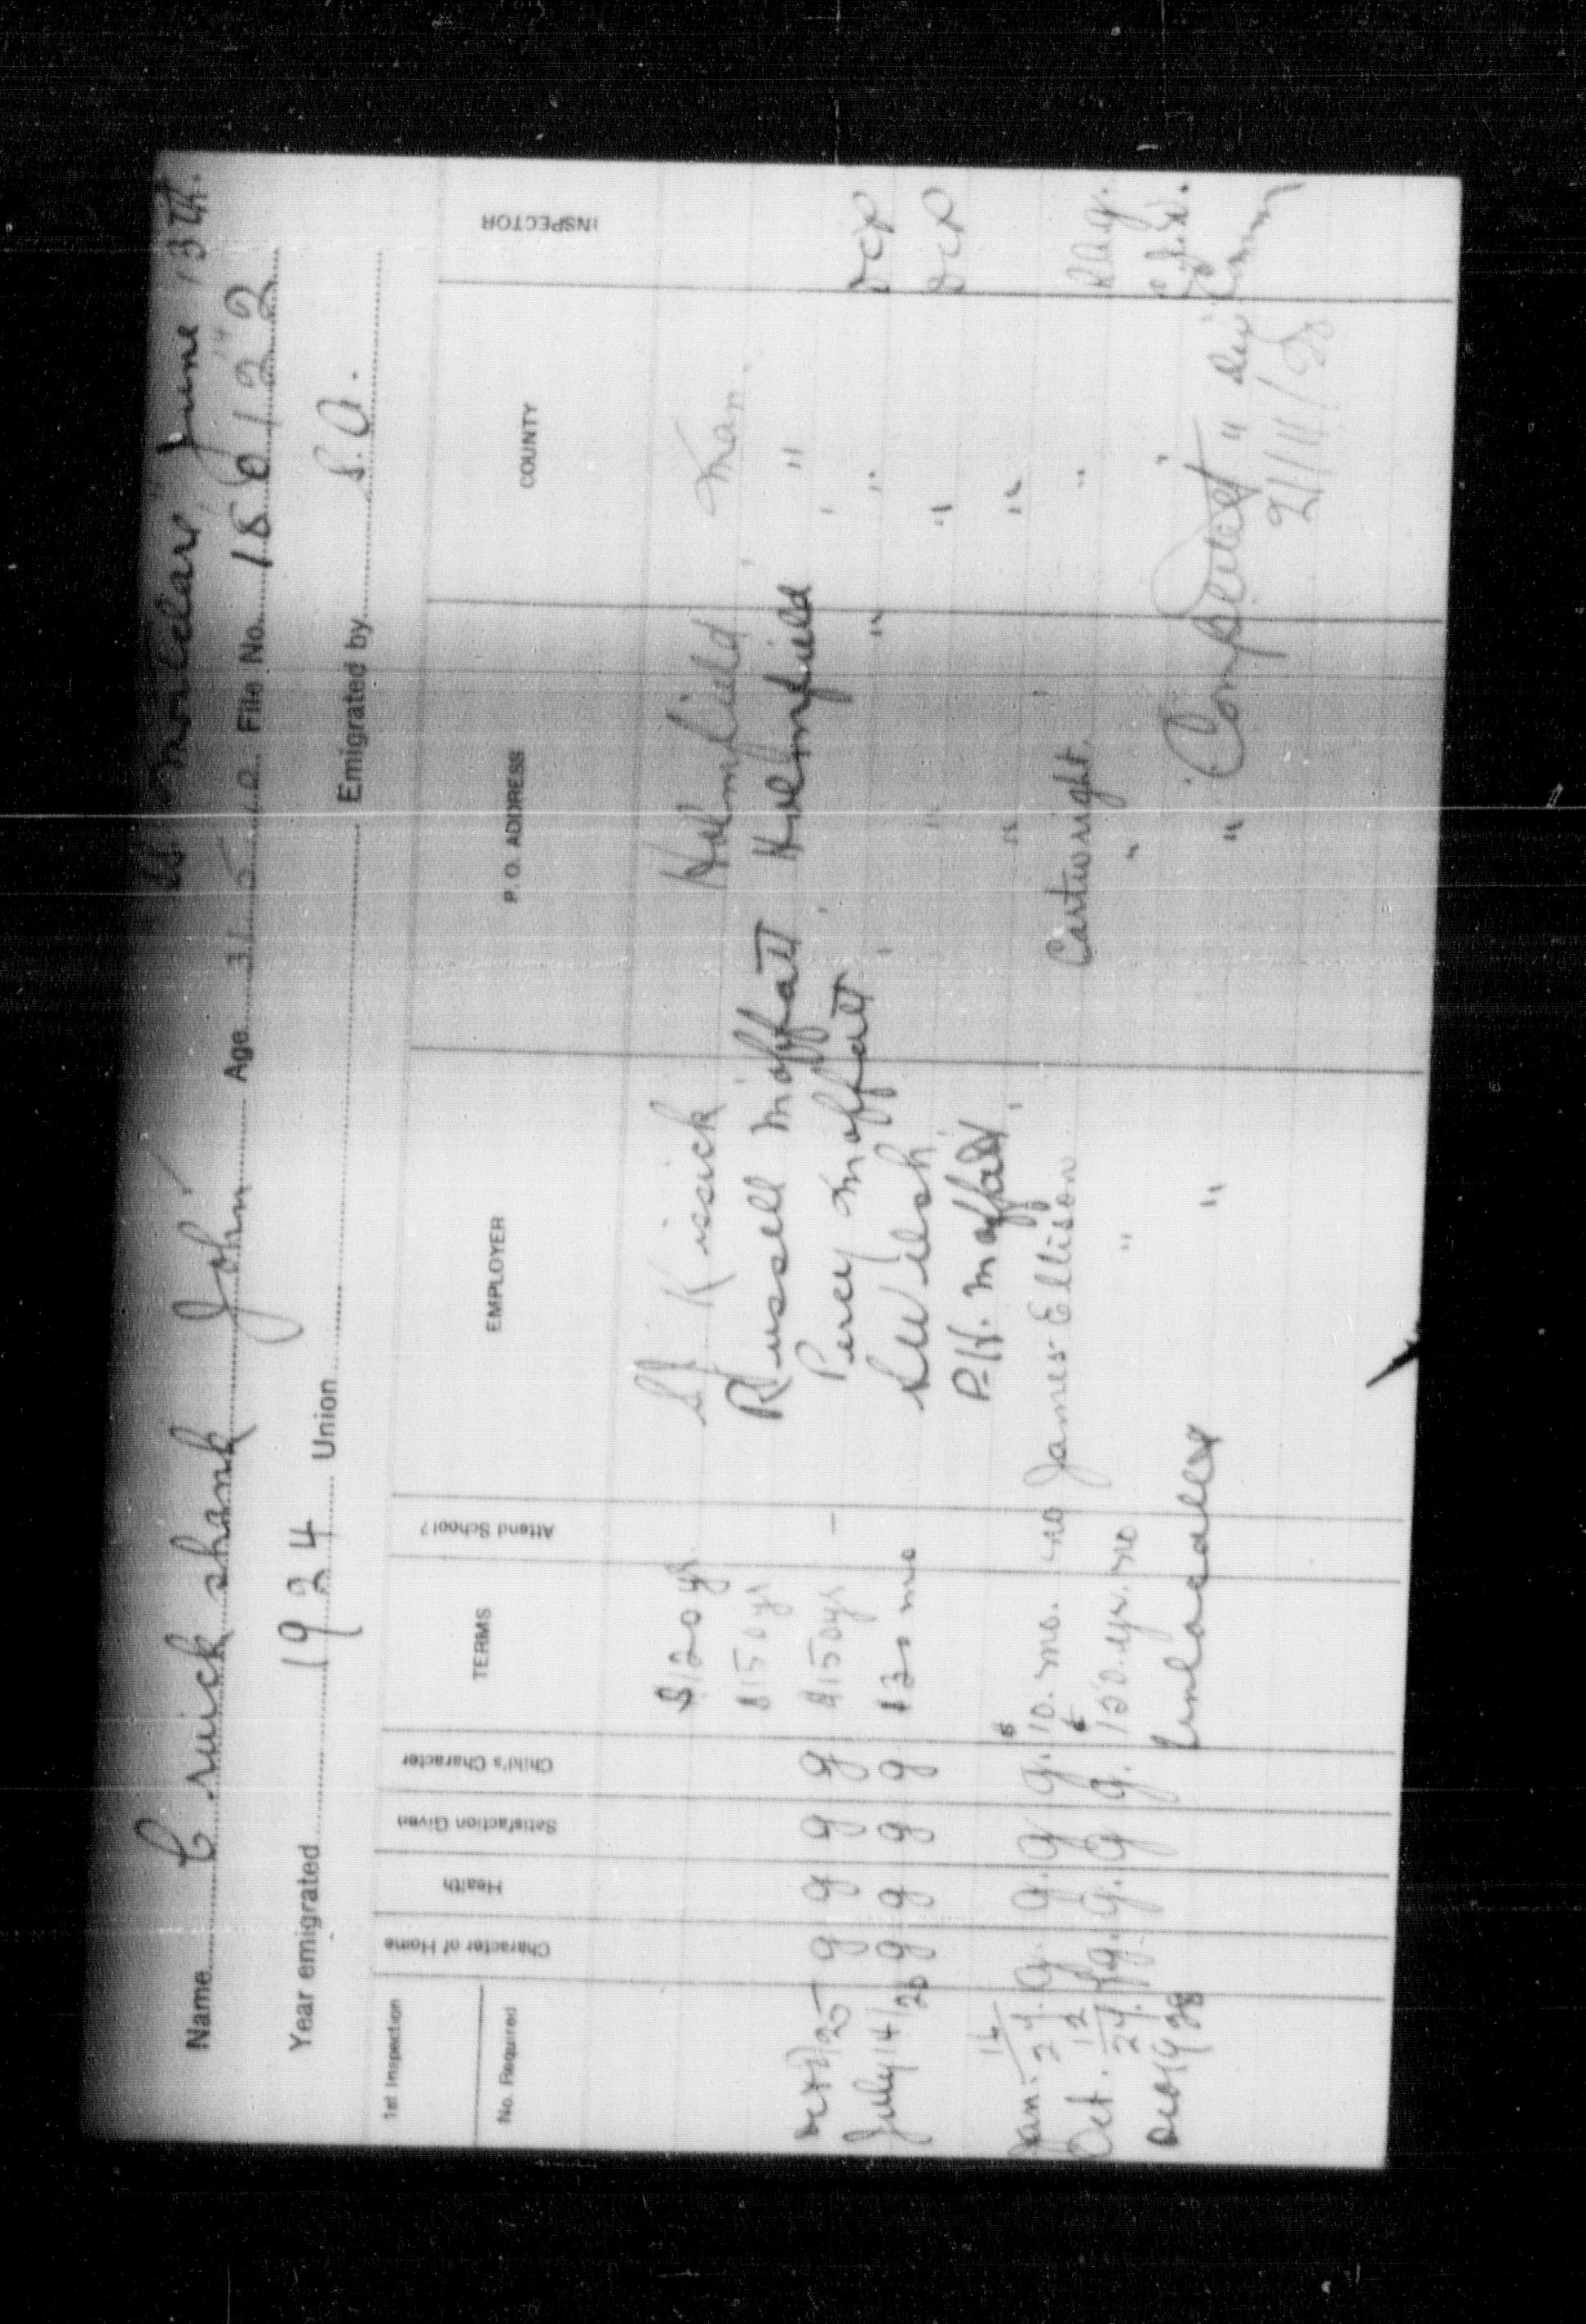 Montclare, June 13th.
Name Cruickshank John Age 31 5 12 File No. 186122
14
Year emigrated 1924 Union Emigrated by S.A.
1st Inspection No. Required Character of Home Health Satisfaction Given Child's Character TERMS Attend School? EMPLOYER P. O. ADDRESS COUNTY INSPECTOR
$120 yr. Kissick Holmfield Man.
$150 yr Russell Moffatt Holmfield "
Oct /25 g g g g $150 yr — Percy Moffatt " " DCR
July 14/26 g g g g 120 mo S Welsh " " DCR
P.H. Moffatt " "
Jan. 16/27. g. g. g g. $10. mo. no James Ellison Cartwright. "
Oct. 12/27. g. g. g g. 120. yr. no " " "
Dec 1928 Unlocated " " Completed "
21/11/28